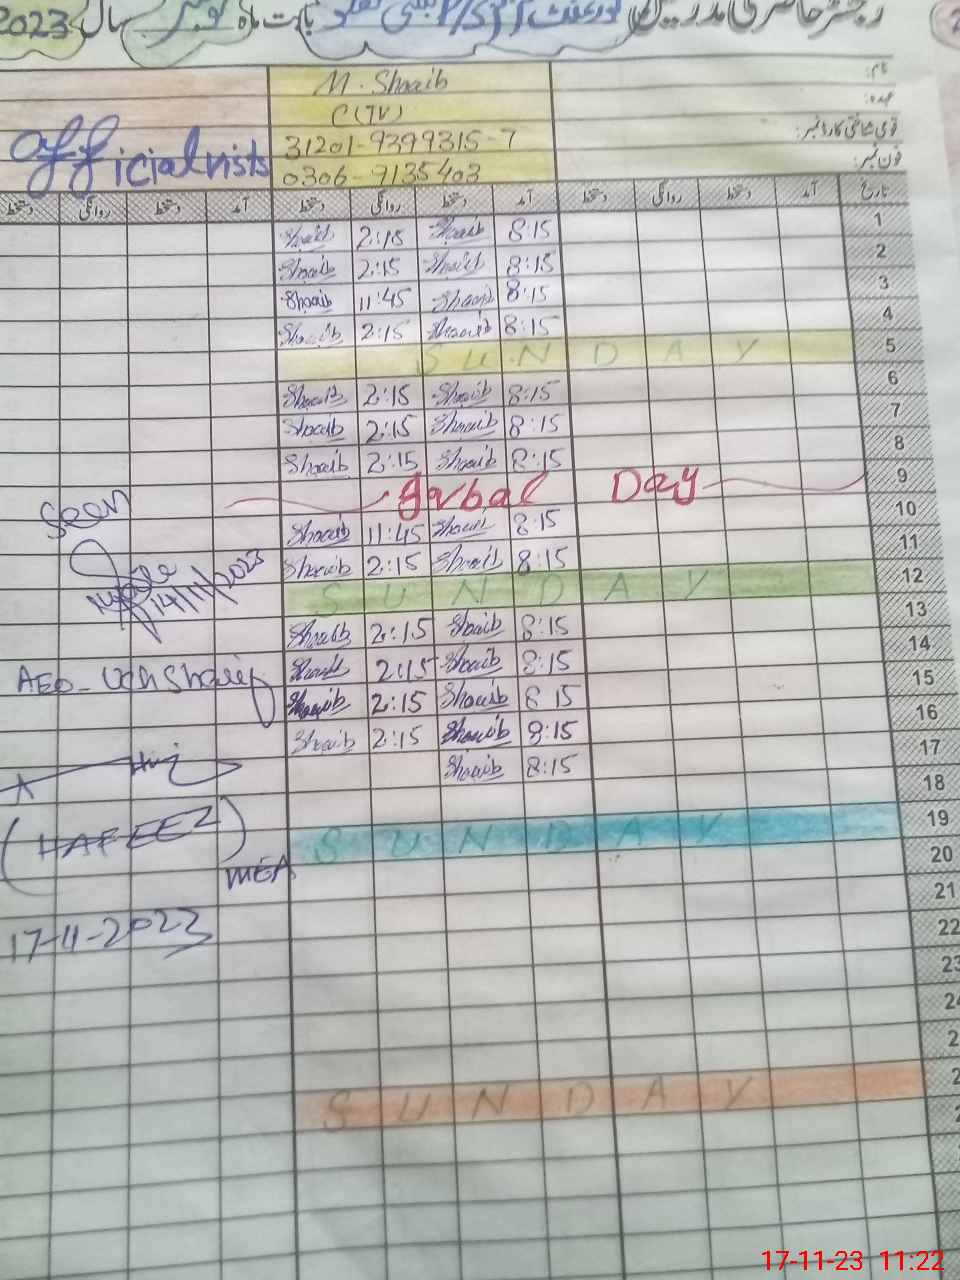 رجسٹر حاضری مدرسین گورنمنٹ بابت ماہ نومبر سال 2023
نام: M. Shoaib
عہدہ: C(IV)
قومی شناختی کارڈ نمبر: 31201-9399315-7
فون نمبر: 0306-9135403
Official visits
تاریخ آمد دستخط روانگی دستخط آمد دستخط روانگی دستخط آمد دستخط روانگی دستخط
1 8:15 Shoaib 2:15 Shoaib
2 8:15 Shoaib 2:15 Shoaib
3 8:15 Shoaib 11:45 Shoaib
4 8:15 Shoaib 2:15 Shoaib
5 SUNDAY
6 8:15 Shoaib 2:15 Shoaib
7 8:15 Shoaib 2:15 Shoaib
8 8:15 Shoaib 2:15 Shoaib
9 Iqbal Day
10 8:15 Shoaib 11:45 Shoaib
11 8:15 Shoaib 2:15 Shoaib
12 SUNDAY
13 8:15 Shoaib 2:15 Shoaib
14 8:15 Shoaib 2:15 Shoaib
15 8 15 Shoaib 2:15 Shoaib
16 8:15 Shoaib 2:15 Shoaib
17 8:15 Shoaib
18
19 SUNDAY
20
21
22
23
24
SUNDAY
Seen
14/11/2023
AEO- Uch Sharif
(HAFEEZ)
MEA
17-11-2023
17-11-23 11:22